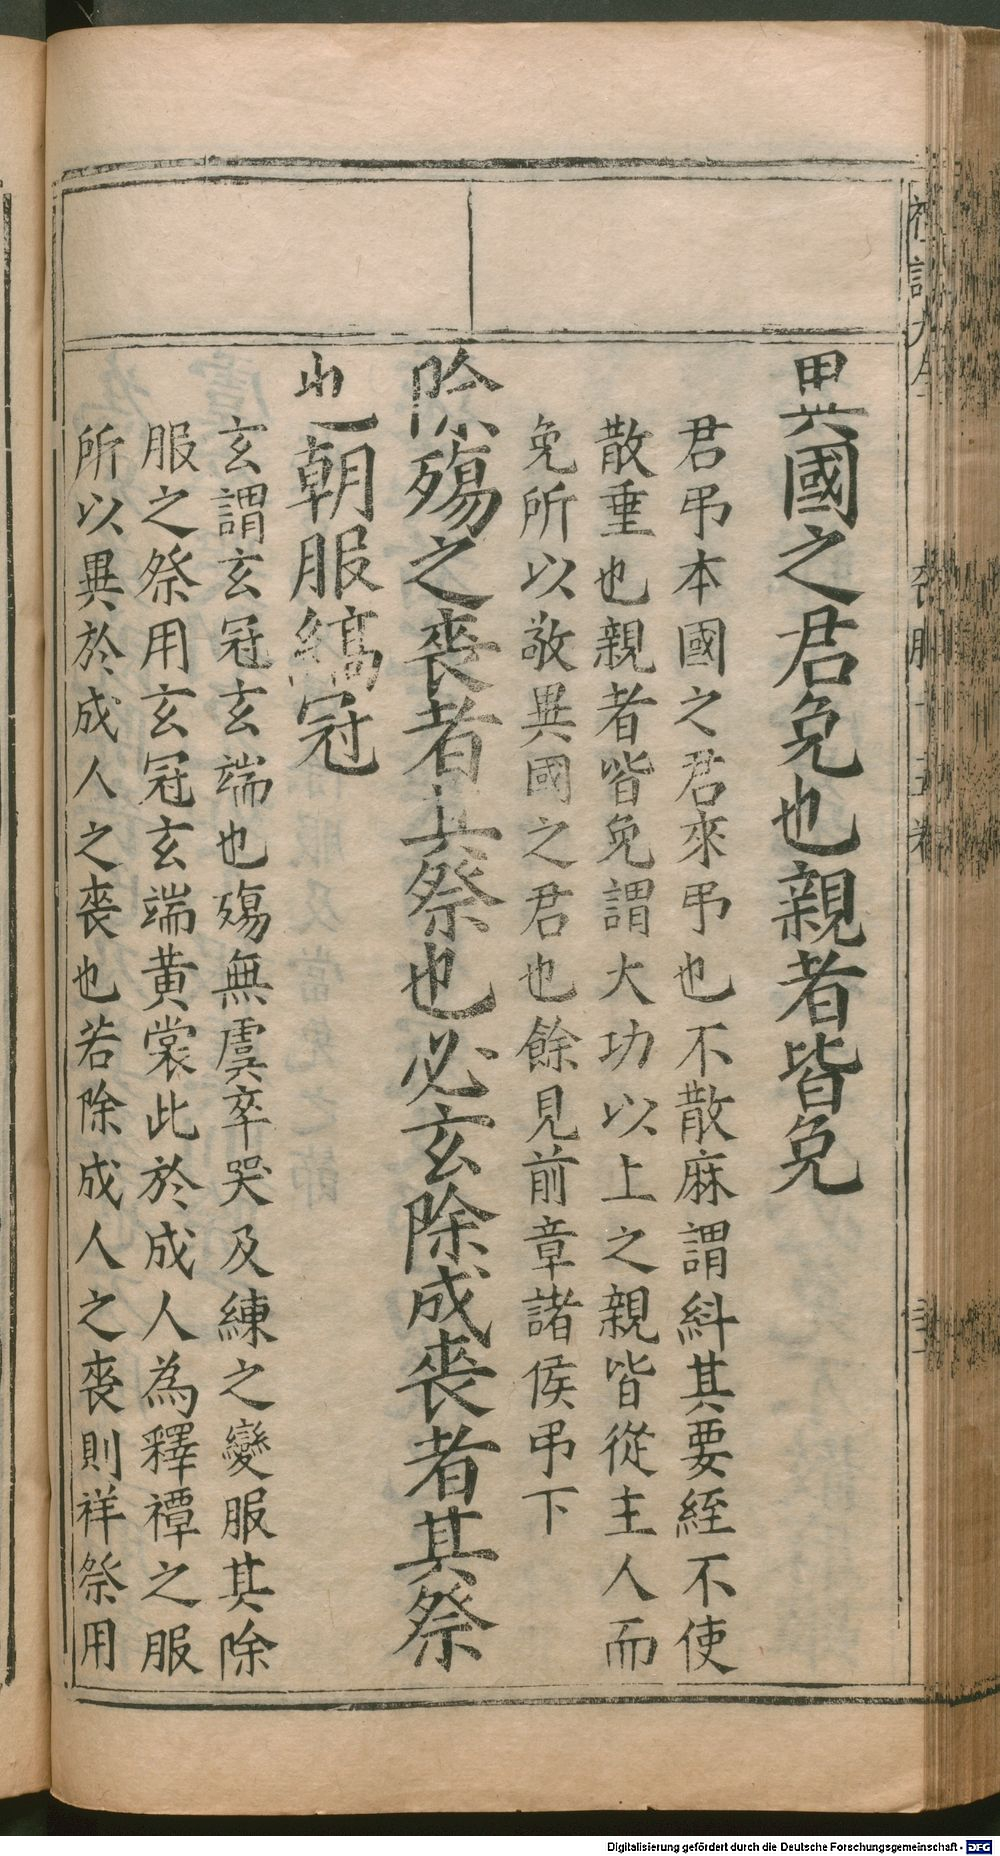 異國之君免也親者皆免
君弔本國之君來弔也不散麻謂糾其要絰不使
散垂也親者皆免謂大功以上之親皆從主人而
免所以敬異國之君也餘見前章諸侯弔下
除殤之喪者其祭也必玄除成喪者其祭
也朝服縞冠
玄謂玄冠玄端也殤無虞卒哭及練之變服其除
服之祭用玄冠玄端黃裳此於成人為釋禫之服
所以異於成人之喪也若除成人之喪則祥祭用
Digitalisierung gefördert durch die Deutsche Forschungsgemeinschaft - DFG